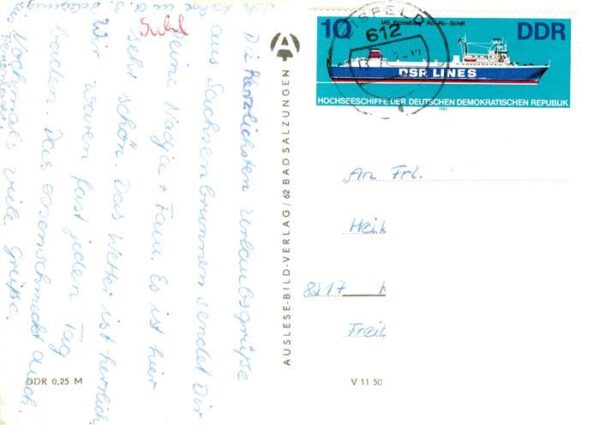 Suhl
Die herzlichsten Urlaubsgrüße
aus Sachsenbrunn sendet Dir
Deine Nadja + Fam. Es ist hier
sehr schön. Das Wetter ist herrlich.
Wir waren fast jeden Tag
baden. Das essen schmeckt auch.
Nochmals viele grüße.
DDR 0,25 M
AUSLESE-BILD-VERLAG / 62 BAD SALZUNGEN
V 11 50
10
DDR
DSR LINES
HOCHSEESCHIFFE DER DEUTSCHEN DEMOKRATISCHEN REPUBLIK
612
An Frl.
Heik
8217 H
Freit